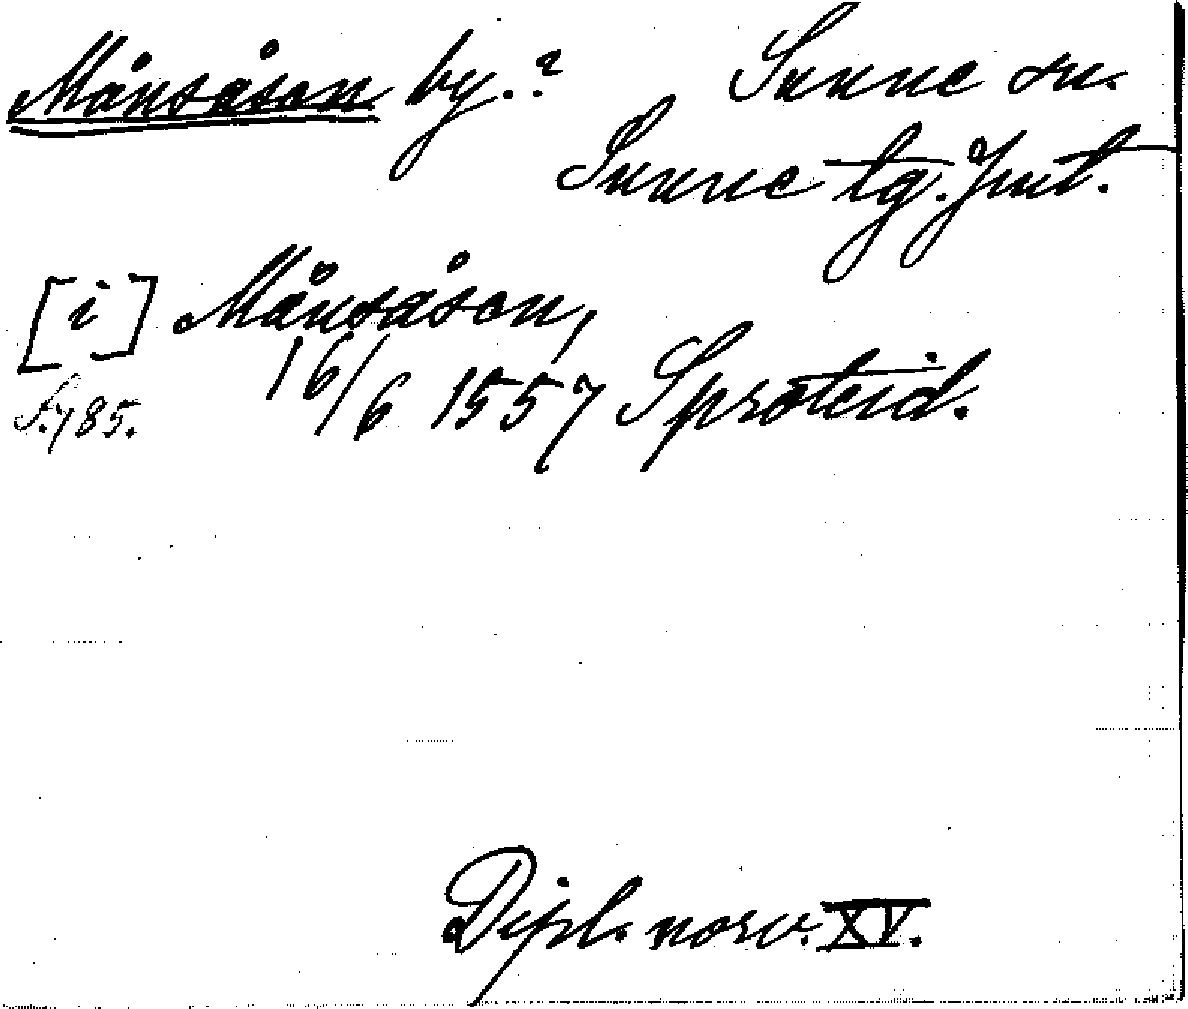 Månsåson by.? Sunne sn.
Sunne tg. Jmt.
[i] Månsåson,
16/6 1557 Spröteid.
S. 785.
Dipl. norv. XV.